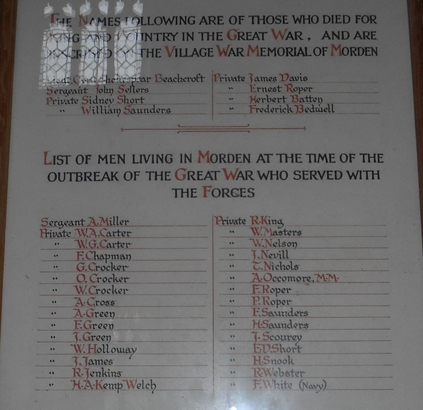 The Names following are of those who died for
King and Country in the Great War, and are
inscribed on the Village War Memorial of Morden
Beachcroft
Sergeant John Sellers
Private Sidney Short
" William Saunders
Private James Davis
" Ernest Roper
" Herbert Batten
" Frederick Bedwell
List of men living in Morden at the time of the
outbreak of the Great War who served with
the Forces
Sergeant A. Miller
Private W.A. Carter
" W.G. Carter
" F. Chapman
" G. Crocker
" O. Crocker
" W. Crocker
" A. Cross
" A. Green
" F. Green
" J. Green
" W. Holloway
" J. James
" R. Jenkins
" H.A. Kemp Welch
Private R. King
" W. Masters
" W. Nelson
" J. Nevill
" T. Nichols
" A. Occomore, M.M.
" F. Roper
" P. Roper
" F. Saunders
" H. Saunders
" J. Scourey
" E.D. Short
" H. Snook
" R. Webster
" F. White (Navy)